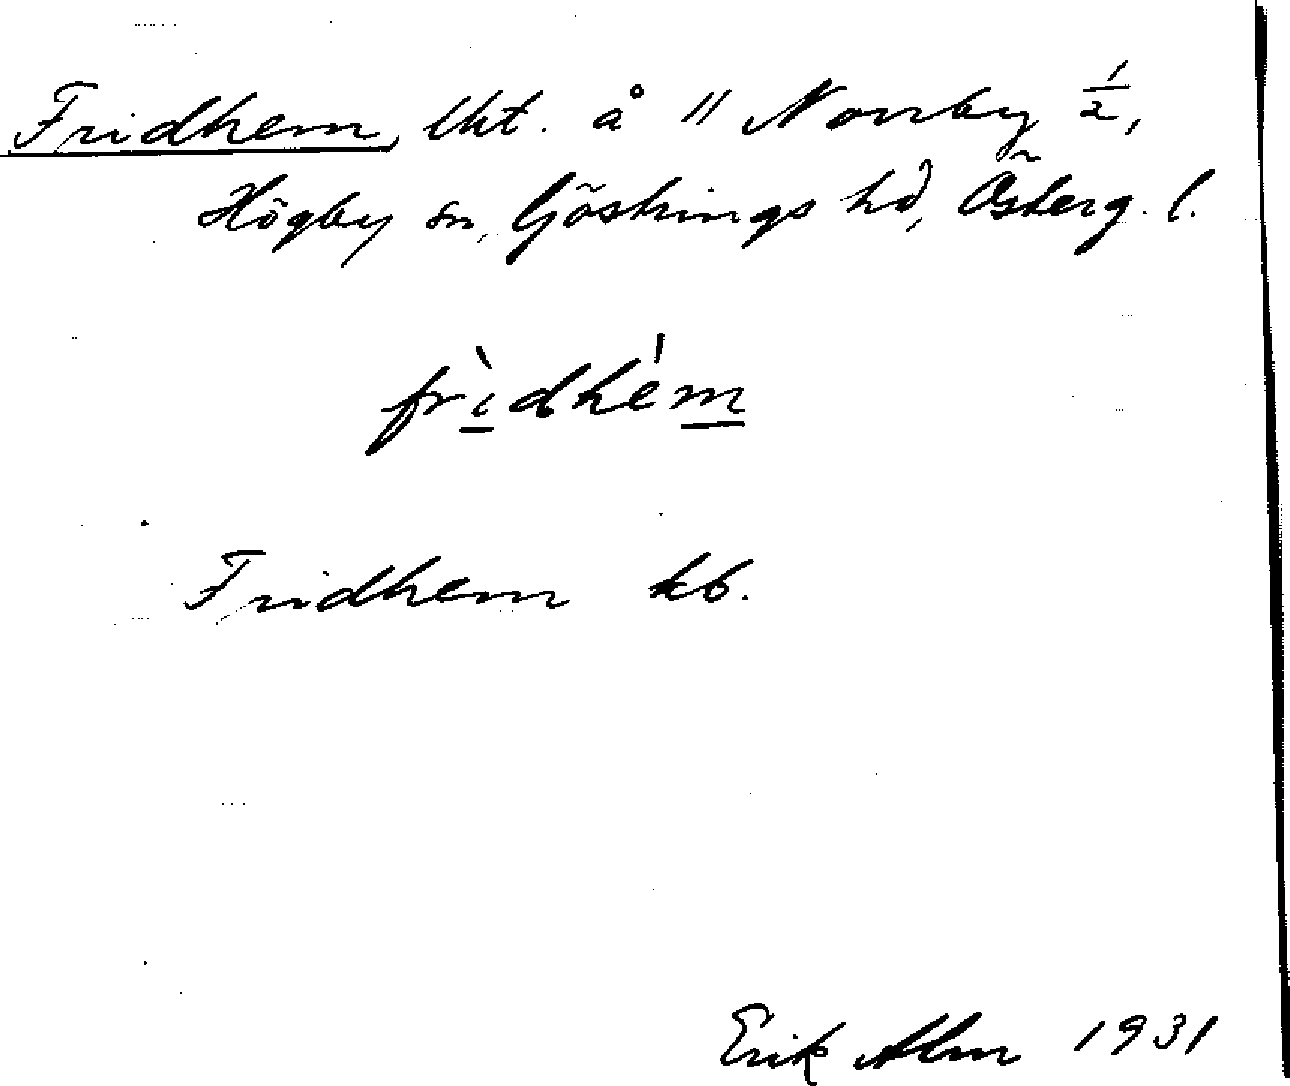 Fridhem, lht. å " Norrby 1/2,
Högby sn, Göstrings hd, Österg. l.
frì̲dhém̲
Fridhem kb.
Erik Alm 1931